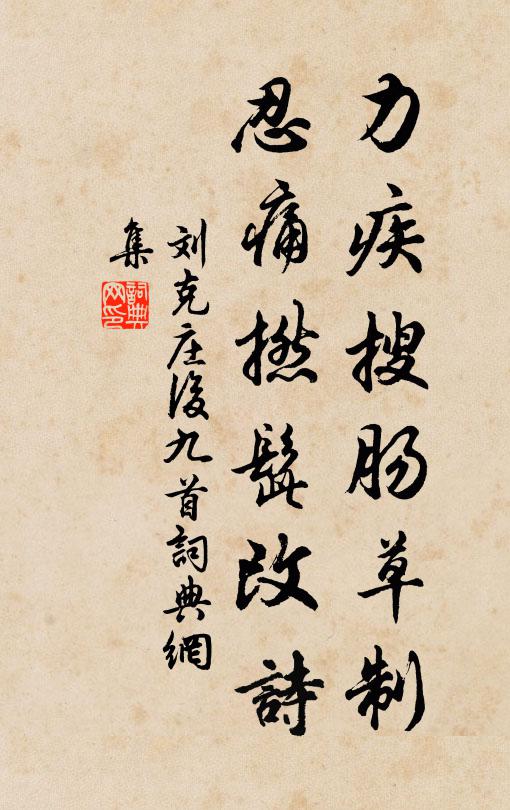 力疾搜肠草制
忍痛撚髭改詩
刘克庄後九首詞典網
集
詞典
网印